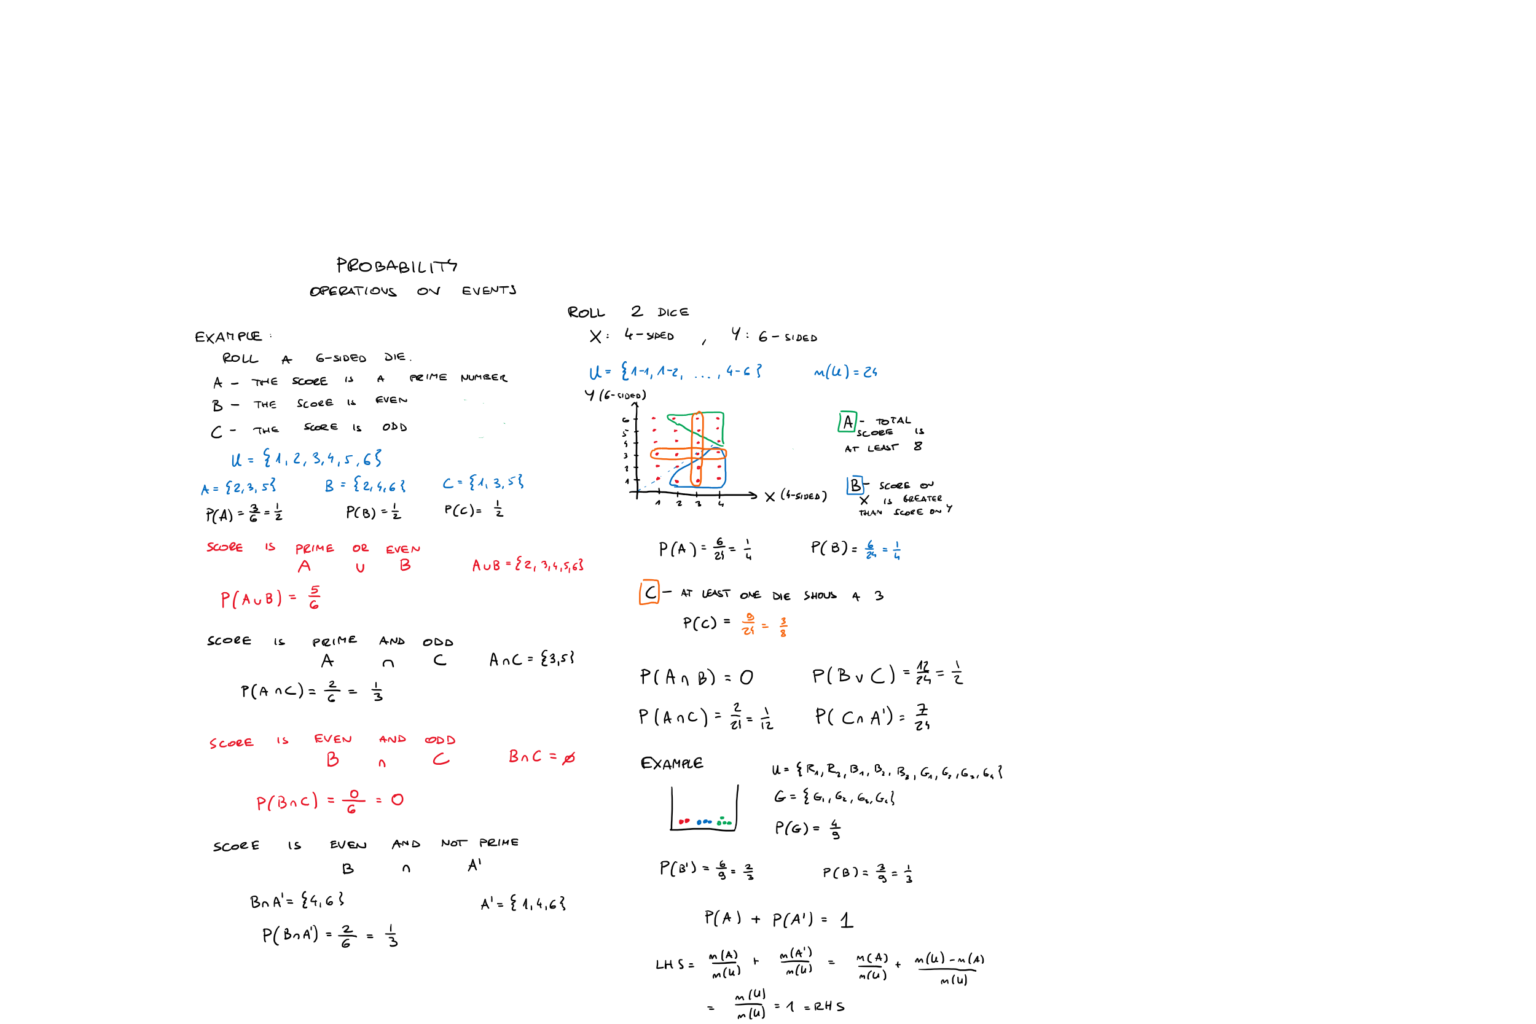 PROBABILITY
OPERATIONS ON EVENTS
EXAMPLE:
ROLL A 6-SIDED DIE.
A - THE SCORE IS A PRIME NUMBER
B - THE SCORE IS EVEN
C - THE SCORE IS ODD
U = {1, 2, 3, 4, 5, 6}
A = {2, 3, 5} B = {2, 4, 6} C = {1, 3, 5}
P(A) = 3/6 = 1/2 P(B) = 1/2 P(C) = 1/2
SCORE IS PRIME OR EVEN
A ∪ B A∪B = {2, 3, 4, 5, 6}
P(A∪B) = 5/6
SCORE IS PRIME AND ODD
A ∩ C A∩C = {3, 5}
P(A∩C) = 2/6 = 1/3
SCORE IS EVEN AND ODD
B ∩ C B∩C = ∅
P(B∩C) = 0/6 = 0
SCORE IS EVEN AND NOT PRIME
B ∩ A'
B∩A' = {4, 6} A' = {1, 4, 6}
P(B∩A') = 2/6 = 1/3
ROLL 2 DICE
X: 4-SIDED , Y: 6-SIDED
U = {1-1, 1-2, ..., 4-6} n(U) = 24
Y (6-SIDED)
6
5
4
3
2
1
1 2 3 4 X (4-SIDED)
A - TOTAL
SCORE IS
AT LEAST 8
B - SCORE ON
X IS GREATER
THAN SCORE ON Y
P(A) = 6/24 = 1/4 P(B) = 6/24 = 1/4
C - AT LEAST ONE DIE SHOWS A 3
P(C) = 9/24 = 3/8
P(A∩B) = 0 P(B∪C) = 12/24 = 1/2
P(A∩C) = 2/24 = 1/12 P(C∩A') = 7/24
EXAMPLE
U = {R₁, R₂, B₁, B₂, B₃, G₁, G₂, G₃, G₄}
G = {G₁, G₂, G₃, G₄}
P(G) = 4/9
P(B') = 6/9 = 2/3 P(B) = 3/9 = 1/3
P(A) + P(A') = 1
LHS = n(A)/n(U) + n(A')/n(U) = n(A)/n(U) + n(U)-n(A)/n(U)
= n(U)/n(U) = 1 = RHS